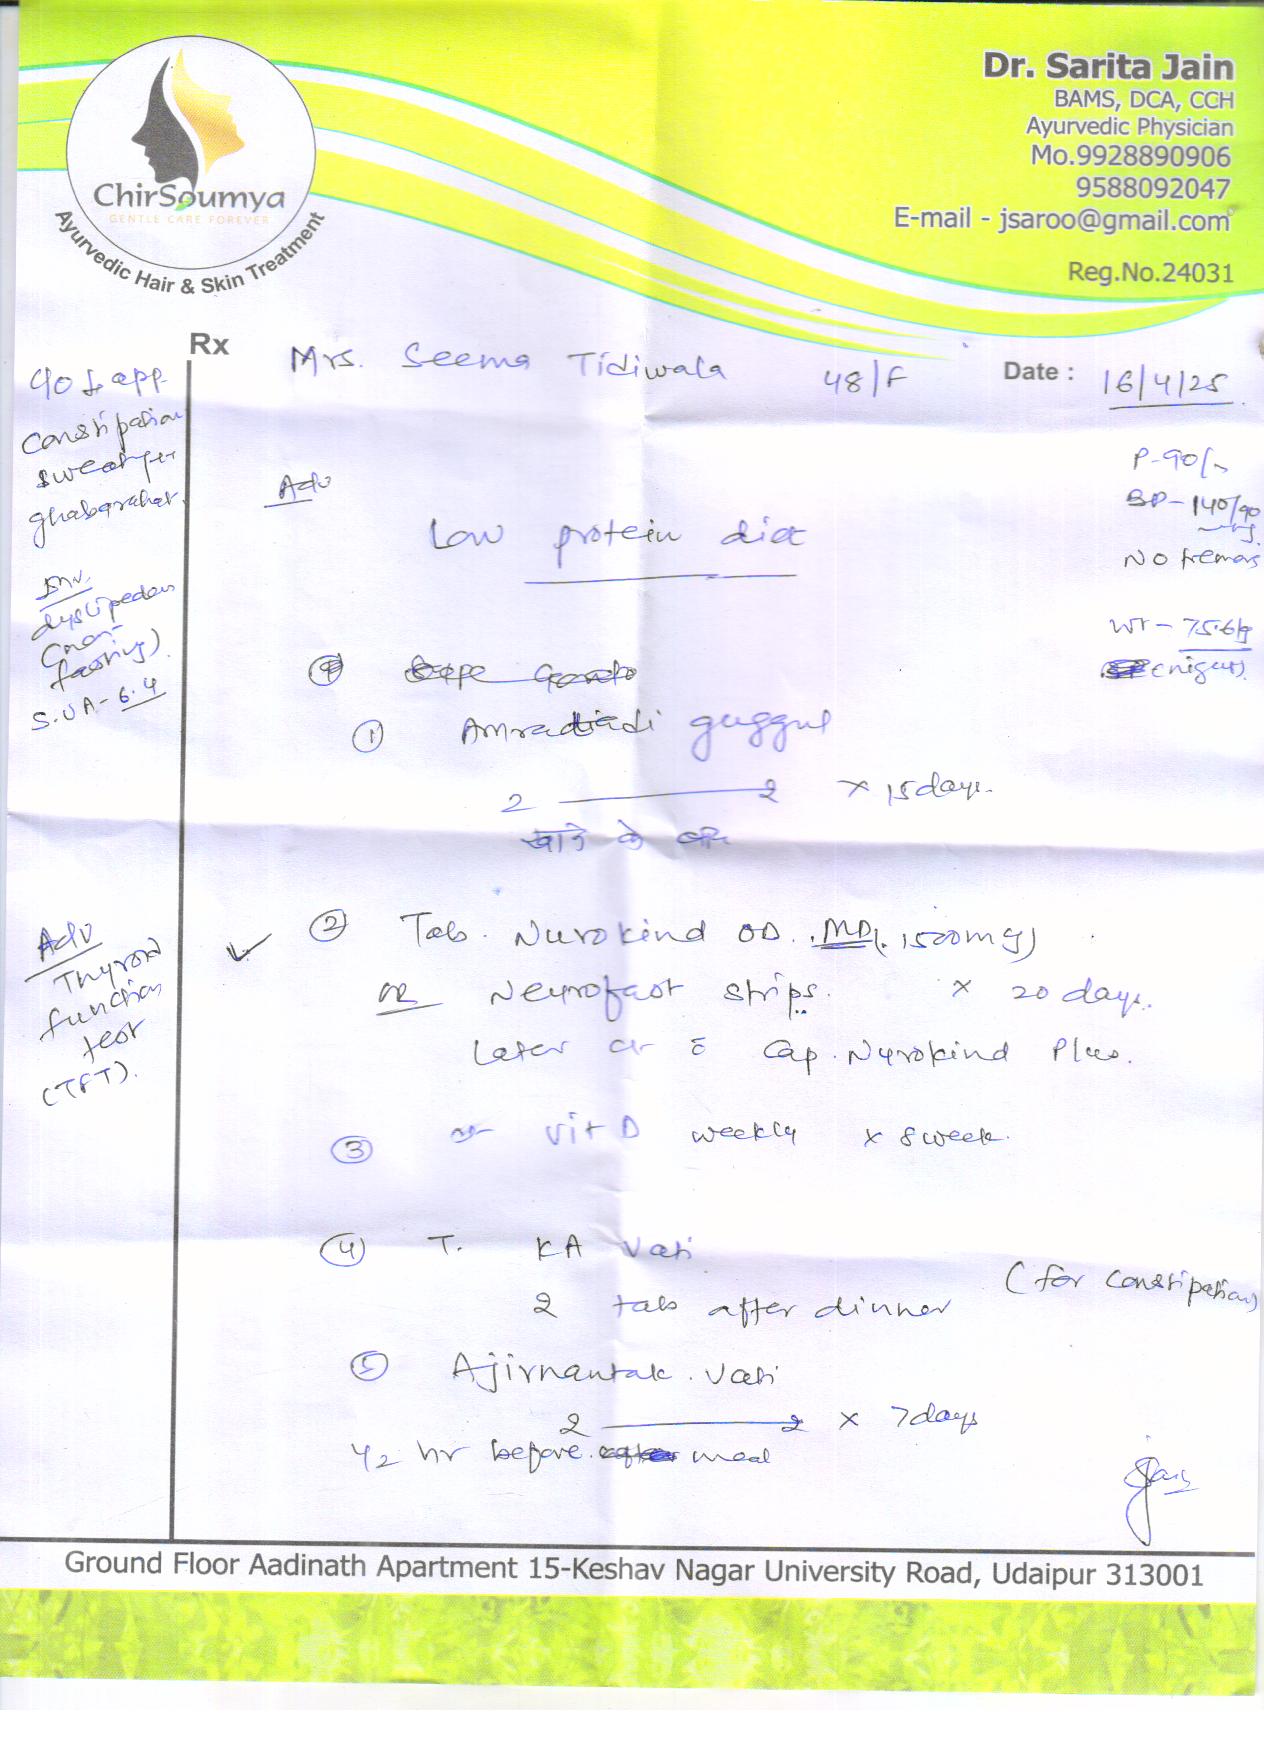 Dr. Sarita Jain
BAMS, DCA, CCH
Ayurvedic Physician
Mo.9928890906
9588092047
E-mail - jsaroo@gmail.com
Reg.No.24031
ChirSoumya
GENTLE CARE FOREVER
Ayurvedic Hair & Skin Treatment
Rx
Mrs. Seema Tidiwala 48/F
Date : 16/4/25
app.
Constipation
ghabarahat
Inv.
fasting)
S.UA- 6.4
Adv
Thyroid
function
test
(TFT).
P-90/
BP-140/90
NO tremors
Wt - 75.6kg
Adv
Low protein diet
① guggul
2 2 x 15 days.
खाने के बाद
② Tab. Nurokind OD. MD(1500mg)
OR Neurofast strips. x 20 days.
Later Cap. Nurokind Plus.
③ Vit D weekly x 8 week.
④ T. KA Vati
2 tab after dinner (for constipation)
⑤ Ajirnantak. Vati
2 2 x 7 days
1/2 hr before meal
Ground Floor Aadinath Apartment 15-Keshav Nagar University Road, Udaipur 313001